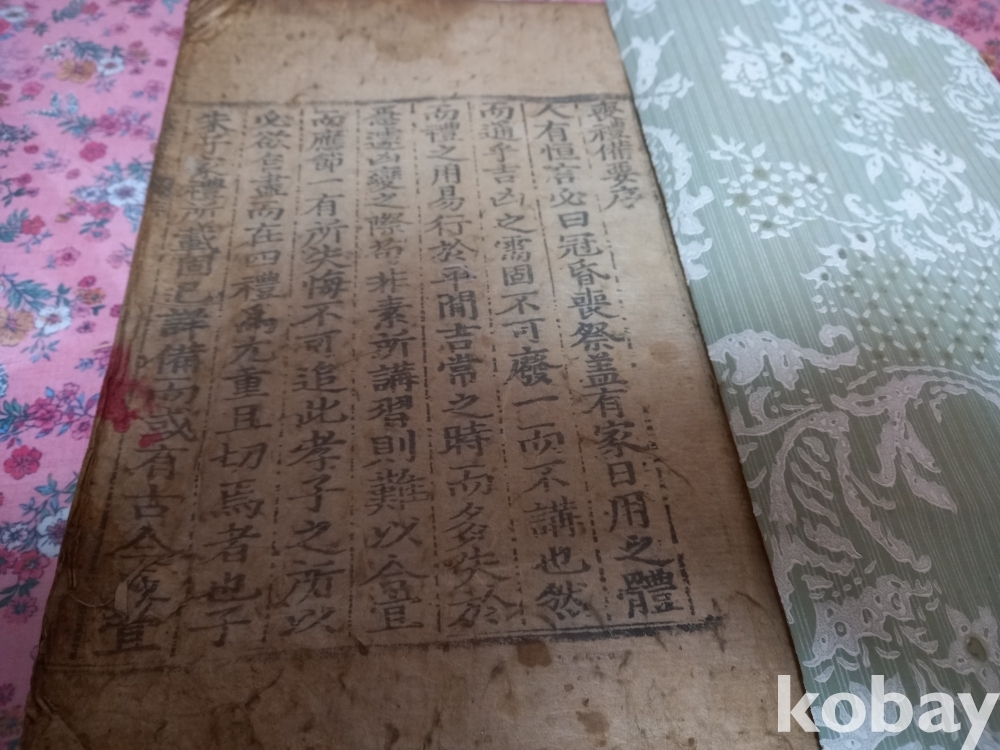 喪禮備要序
人有恒言必曰冠昏喪祭盖有家日用之體
而通乎吉凶之需固不可廢一而不講也然
而禮之用易行於平閒吉常之時而多失於
凶變之際苟非素所講習則難以合宜
而應節一有所失悔不可追此孝子之所以
必欲自盡而在四禮爲尤重且切焉者也子
朱子家禮所載固已詳備而或有古今宜
kobay